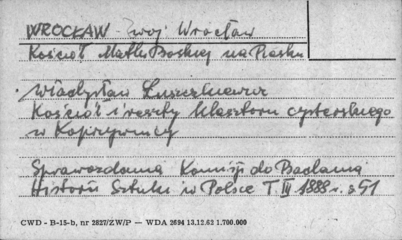 WROCŁAW - woj Wrocław
Kościół Matki Boskiej na Piasku
Władysław Łuszczkiewicz
Kościół i reszty klasztoru cysterskiego
w Koprzywnicy
Sprawozdania Komisji do Badania
Historii Sztuki w Polsce T. III 1888 r. s 51
CWD - B-15-b, nr 2827/ZW/P — WDA 2694 13.12.62 1.700.000